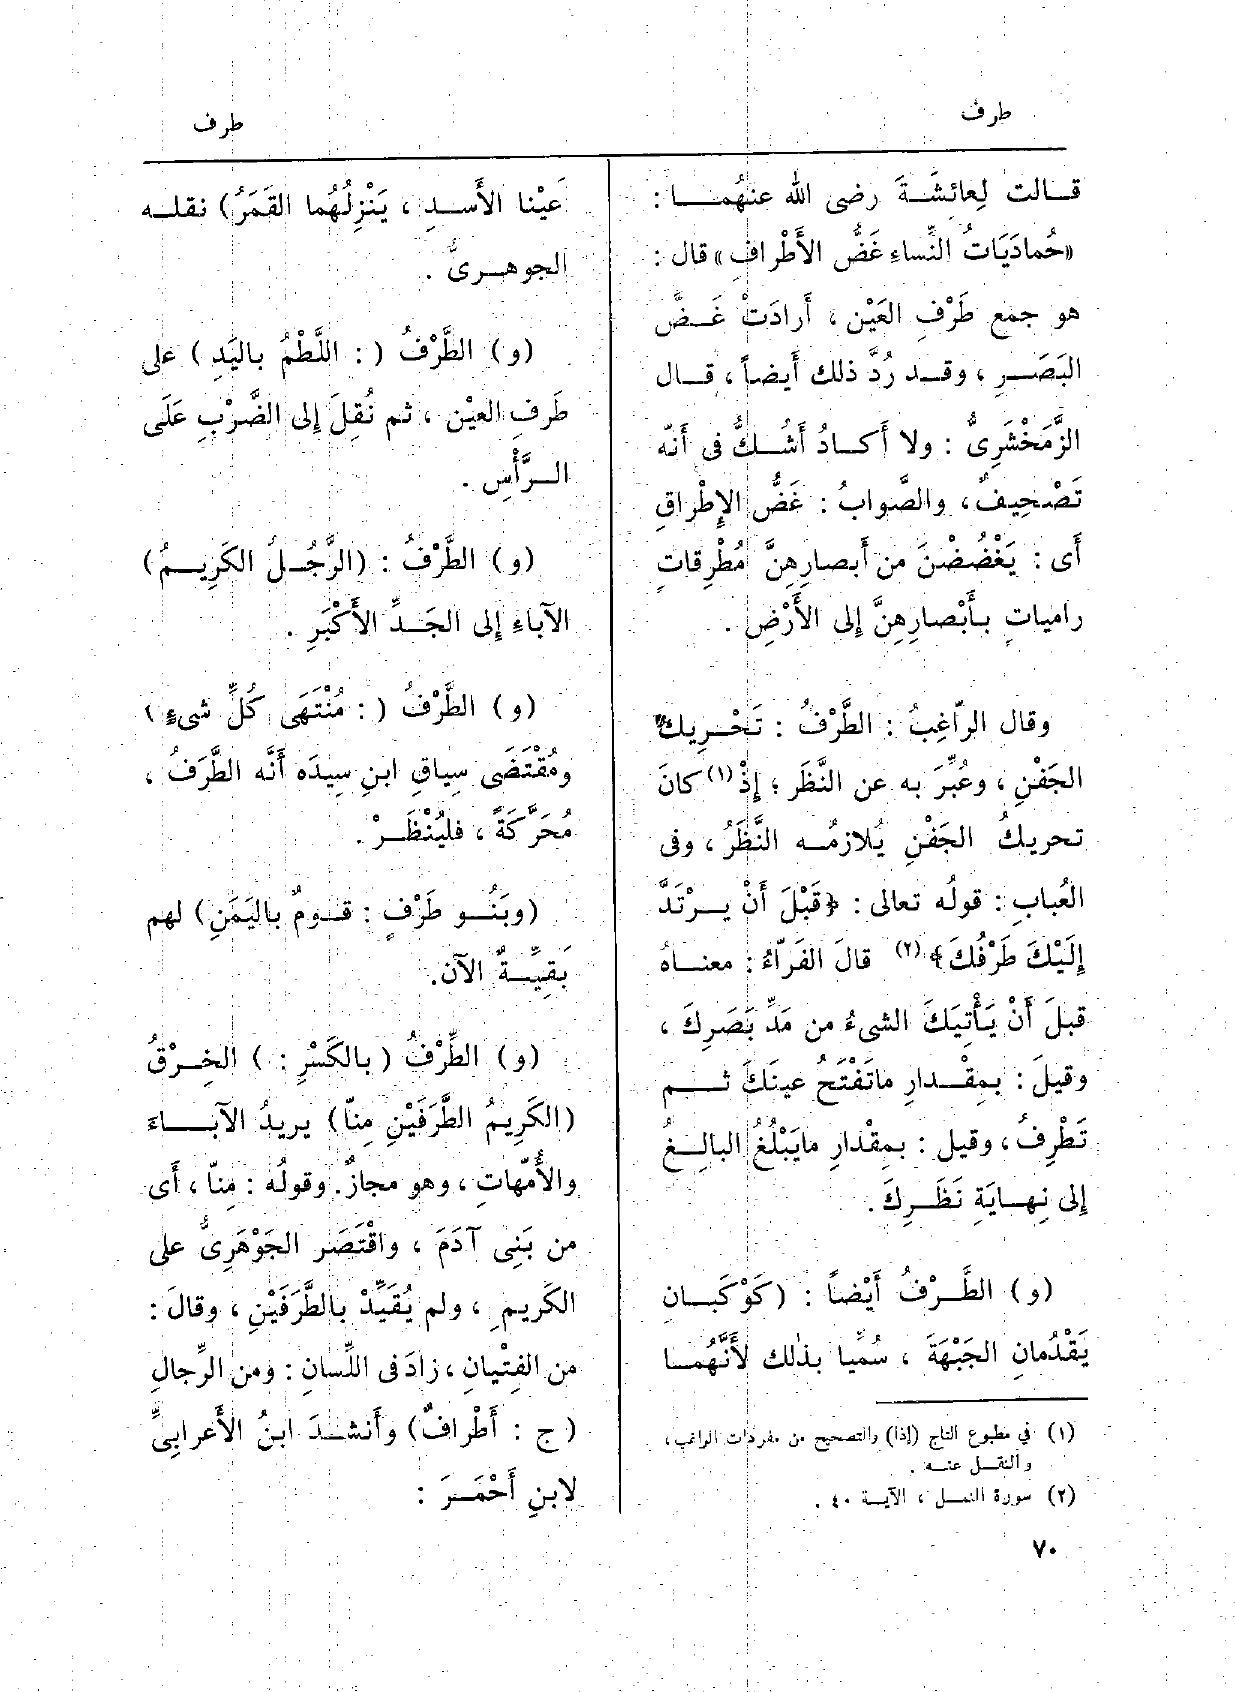 طرف
طرف
قالت لِعائِشَةَ رضى الله عنهُما :
«حُمادَيَاتُ النِّساءِ غَضُّ الأَطْرافِ» قال :
هو جمع طَرْفِ العَيْنِ ، أَرادَتْ غَضَّ
البَصَرِ ، وقد رُدَّ ذلك أَيضاً ، قال
الزَّمَخْشَرِىُّ : ولا أَكادُ أَشُكُّ فى أَنّه
تَصْحِيفٌ ، والصَّوابُ : غَضُّ الإِطْراقِ
أَى : يَغْضُضْنَ من أَبصارِهِنَّ مُطْرِقاتٍ
رامياتٍ بأَبْصارِهِنَّ إلى الأَرْضِ .
وقال الرّاغِبُ : الطَّرْفُ : تَحْرِيكُ
الجَفْنِ ، وعُبِّرَ به عن النَّظَر ؛ إِذْ (١) كانَ
تحريكُ الجَفْنِ يُلازمُه النَّظَرُ ، وفى
العُبابِ : قولُه تعالى : ﴿قَبْلَ أَنْ يَرْتَدَّ
إِلَيْكَ طَرْفُكَ﴾ (٢) قالَ الفَرّاءُ : معناهُ
قبلَ أَنْ يَأْتِيَكَ الشىءُ من مَدِّ بَصَرِكَ ،
وقيلَ : بمِقْدارِ ماتَفْتَحُ عينَكَ ثم
تَطْرِفُ ، وقيل : بمِقْدارِ مايَبْلُغُ البالِغُ
إلى نِهايَةِ نَظَرِكَ .
(و) الطَّرْفُ أَيْضاً : (كَوْكَبانِ
يَقْدُمانِ الجَبْهَةَ ، سُمِّيا بذٰلك لأَنَّهُما
(١) في مطبوع التاج (إذا) والتصحيح من مفردات الراغب ،
والنقل عنه .
(٢) سورة النمل ، الآية ٤٠ .
٧٠
عَيْنا الأَسدِ ، يَنْزِلُهُما القَمَرُ) نقله
الجوهرىُّ .
(و) الطَّرْفُ ( : اللَّطْمُ باليَدِ ) على
طَرفِ العيْنِ ، ثم نُقِلَ إلى الضَّرْبِ عَلَى
الرَّأْسِ .
(و) الطَّرْفُ : (الرَّجُلُ الكَرِيمُ)
الآباءِ إلى الجَدِّ الأَكْبَرِ .
(و) الطَّرْفُ ( : مُنْتَهَى كُلِّ شىءٍ )
ومُقْتَضَى سِياقِ ابنِ سِيدَه أَنَّه الطَّرَفُ ،
مُحَرَّكَةً ، فليُنْظَرْ .
(وبَنُو طَرْفٍ : قومٌ باليَمَنِ) لهم
بَقِيَّةٌ الآن.
(و) الطِّرْفُ ( بالكَسْرِ : ) الخِرْقُ
(الكَرِيمُ الطَّرَفَيْنِ مِنّا) يريدُ الآباءَ
والأُمّهاتِ ، وهو مجازٌ. وقولُه : مِنّا ، أَى
من بَنِى آدَمَ ، واقْتَصَر الجَوْهَرِىُّ على
الكَريمِ ، ولم يُقَيِّدْ بالطَّرَفَيْنِ ، وقالَ :
من الفِتْيانِ ، زادَ فى اللِّسانِ : ومن الرِّجالِ
( ج : أَطْرافٌ) وأَنشدَ ابنُ الأَعرابىِّ
لابنِ أَحْمَرَ :